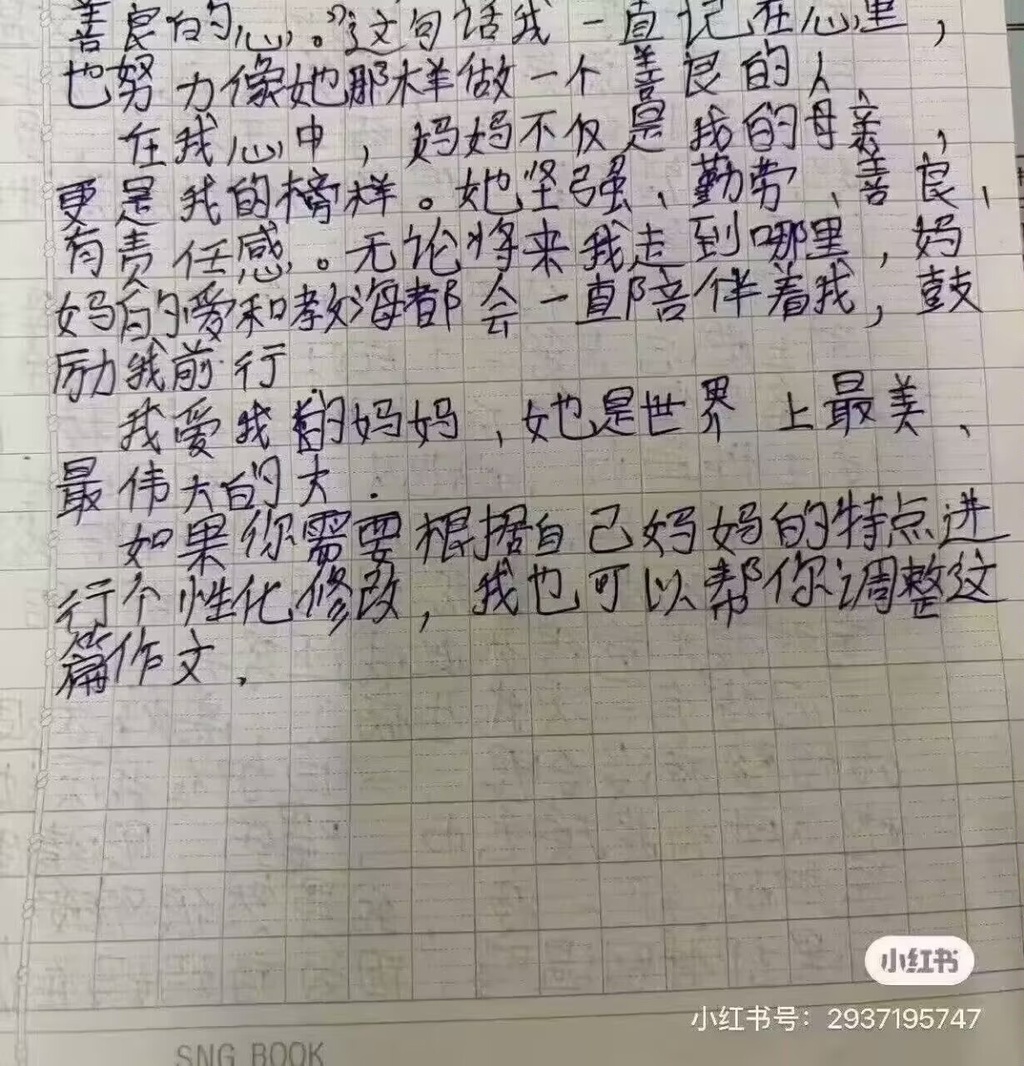 善良的心。”这句话我一直记在心里，
也努力像她那样做一个善良的人。
在我心中，妈妈不仅是我的母亲，
更是我的榜样。她坚强、勤劳、善良、
有责任感。无论将来我走到哪里，妈
妈的爱和教诲都会一直陪伴着我，鼓
励我前行
我爱我的妈妈，她是世界上最美、
最伟大的大.
如果你需要根据自己妈妈的特点进
行个性化修改，我也可以帮你调整这
篇作文.
小红书
小红书号：2937195747
SNG BOOK